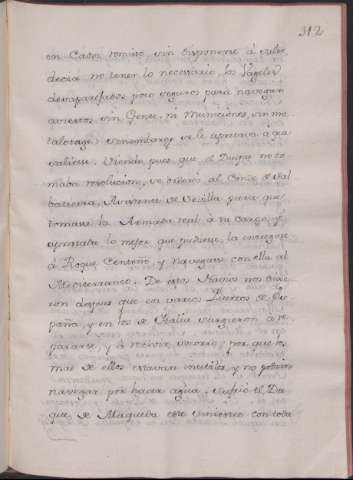 312
en Cadiz remiso sin disponerse á salir
decia no tener lo necesario, los Vageles
desaparejados poco seguros para navegar
abiertos sin Gente, ni Municiones, sin ma-
talotage: sin embargo se le apretava á que
saliese. Viendo pues que el Duque no to-
mava resolucion, se ordenó al Conde de Sal-
batierra, Asistente de Sevilla para que
tomase la Armada real á su cargo, y
aprestase lo mejor que pudiese, la entregase
á Roque Centeno, y navegase con ella al
Mediterraneo. De estos Navios nos dixe-
ron despues que en varios Puertos de Es-
paña, y en los de Italia surgieron á re-
pararse, y á recivir socorro; por que los
mas de ellos estavan inutiles, y no podian
navegar por hacer agua. Sufrió el Du-
que de Maqueda este sinsabor con toda